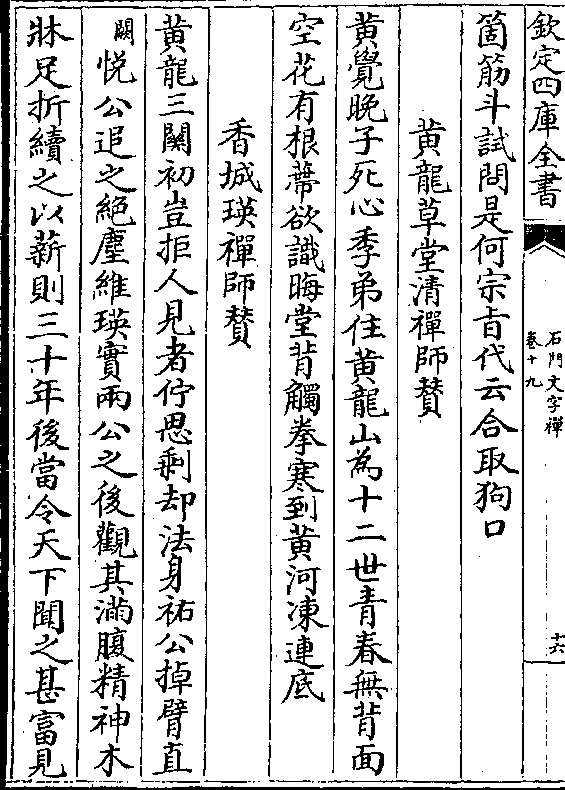 欽定四庫全書
石門文字禪
卷十九
十六
箇筋斗試問是何宗旨代云合取狗口
黄龍草堂清禪師賛
黄覺晚子死心季弟住黄龍山為十二世青春無背面
空花有根蔕欲識晦堂背觸拳寒到黄河凍連底
香城瑛禪師賛
黄龍三闗初豈拒人見者佇思剩却法身祐公掉臂直
闕悦公追之絶塵維瑛實兩公之後觀其滿腹精神木
牀足折續之以薪則三十年後當令天下聞之甚富見